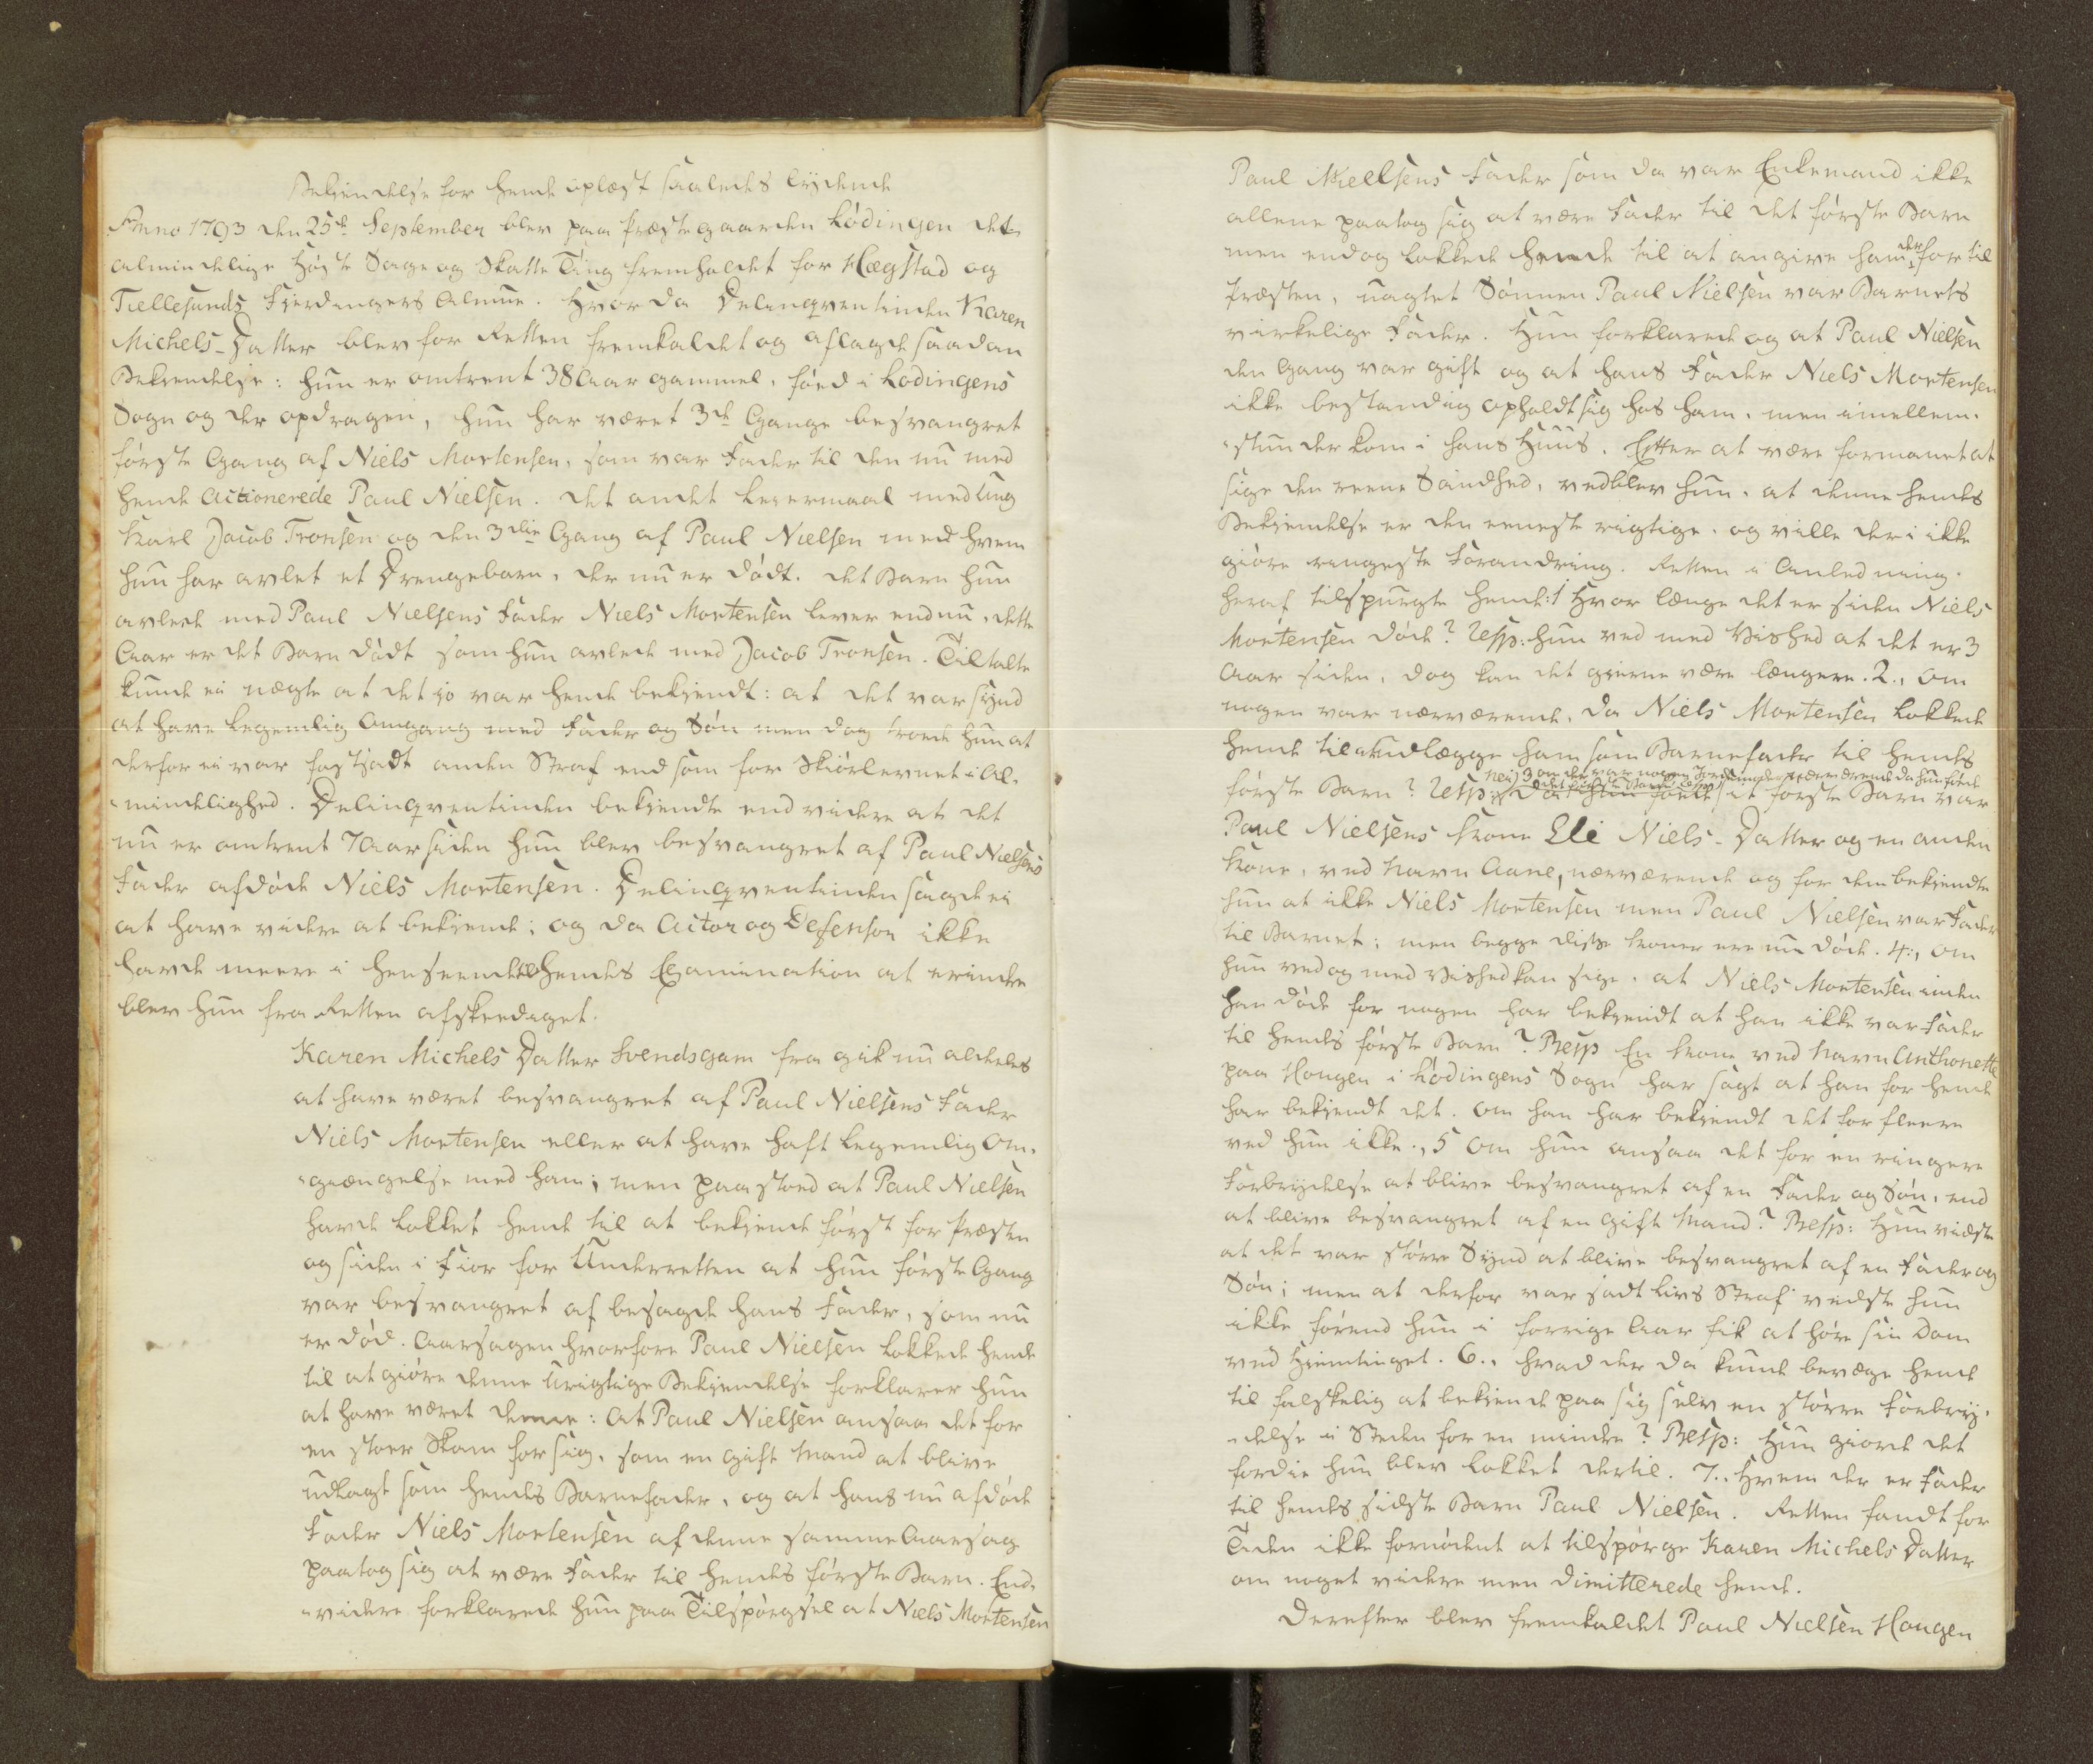 Bekiendelse for hende oplæst saaledes lÿdende
Anno 1793 den 25de September blev paa Præstegaarden Lødingen det
almindelige Høste Sage og Skatte Ting fremholdet for Hægstad og
Tiellesunds Fierdingers Almue. Hvor da Delinqventinden Karen
Michels-Datter blev for Retten fremkaldet og aflagde saadan
Bekiendelse: hun er omtrent 38 Aar gammel, fød i Lødingens
Sogn og der opdragen, hun har været 3de Gange besvangret
første Gang af Niels Mortensen, som var Fader til den nu med
hende Actionerede Paul Nielsen. det andet Leiermaal med ung
Karl Jacob Tronsen og den 3die Gang af Paul Nielsen med hvem
hun har avlet et Drengebarn, der nu er dødt. det Barn hun
avlede med Paul Nielsens Fader Niels Mortensen lever endnu, dette
Aar er det Barn dødt som hun avlede med Jacob Tronsen. Tiltalte
kunde ei nægte at det jo var hende bekiendt: at det var synd
at have legemlig Omgang med Fader og Søn men dog troede hun at
derfor ei var fastsadt anden Straf end som for Skiørlevnet i Al-
mindelighed. Delinqventinden bekiendte end videre at det
nu er omtrent 7 Aar siden hun blev besvangret af Paul Nielsens
Fader afdøde Niels Mortensen. Delinqventinden sagde ei
at have videre at bekiende; og da Actor og Defensor ikke
havde meere i henseende til hendes Examination at erindre
blev hun fra Retten afskeediget.
Karen Michels Datter Svendsgam fra gik nu aldeles
at have været besvangret af Paul Nielsens Fader
Niels Mortensen eller at have haft legemlig Om-
giængelse med ham; men paastoed at Paul Nielsen
havde lokket hende til at bekiende først for Præsten
og siden i Fior for Underretten at hun første Gang
var besvangret af besagde hans Fader, som nu
er død. Aarsagen hvorfore Paul Nielsen lokkede hende
til at giøre denne Urigtige Bekiendelse forklarer hun
at have været denne: At Paul Nielsen ansaae det for
en stoer Skam for sig, som en gift Mand at blive
udlagt som hendes Barnefader, og at hans nu afdøde
Fader Niels Mortensen af denne samme Aarsag
paatog sig at være Fader til hendes første Barn. End-
videre forklarede hun paa Tilspørgsel at Niels Mortensen
Paul Nielsens Fader som da var Enkemand ikke
allene paatog sig at være Fader til det første Barn
men endog lokkede hende til at angive ham derfor til
Præsten, uagtet Sønnen Paul Nielsen var Barnets
virkelige Fader. Hun forklarede og at Paul Nielsen
den Gang var gift og at hans Fader Niels Mortensen
ikke bestandig opholdt sig hos ham, men imellem-
stunder kom i hans Huus. Efter at være formanet at
sige den reene Sandhed, vedblev hun, at denne hendes
Bekiendelse er den eeneste rigtige, og ville deri ikke
giøre ringeste Forandring. Retten i Anledning
heraf tilspurgte hende: 1 Hvor længe det er siden Niels
Mortensen døde? Resp: hun ved med Vished at det er 3
Aar siden, dog kan det gierne være længere. 2., om
nogen var nærværende, da Niels Mortensen lokkede
hende til at udlægge ham som Barnefader til hendes
nei, 3 om der var nogen nærværende da hun fødte
det første Barn Resp
første Barn? Resp: Da hun fødte sit første Barn var
Paul Nielsens Kone Eli Niels-Datter og en anden
Kone, ved Navn Aane, nærværende og for dem bekiendte
hun at ikke Niels Mortensen men Paul Nielsen var Fader
til Barnet; men begge disse Koner ere nu døde. 4., om
hun ved og med Vished kan sige, at Niels Mortensen inden
han døde for nogen har bekiendt at han ikke var Fader
til hendes første Barn? Resp En Kone ved Navn Anthonette
paa Hougen i Lødingens Sogn har sagt at han for hende
har bekiendt det. om han har bekiendt det for fleere
ved hun ikke., 5 om hun ansaae det for en ringere
Forbrydelse at blive besvangret af en Fader og Søn, end
at blive besvangret af en gift Mand? Resp: Hun vidste
at det var større Synd at blive besvangret af en Fader og
Søn; men at derfor var sadt Livs Straf vidste hun
ikke førend hun i forrige Aar fik at høre sin Dom
ved Hiemtinget. 6., hvad der da kunde bevæge hende
til falskelig at bekiende paa sig selv en større Forbry-
delse i Steden for en mindre? Resp: Hun giorde det
fordie hun blev lokket dertil. 7., Hvem der er Fader
til hendes sidste Barn Paul Nielsen. Retten fandt for
Tiden ikke fornødent at tilspørge Karen Michels Datter
om noget videre men dimitterede hende.
Derefter blev fremkaldet Paul Nielsen Hougen